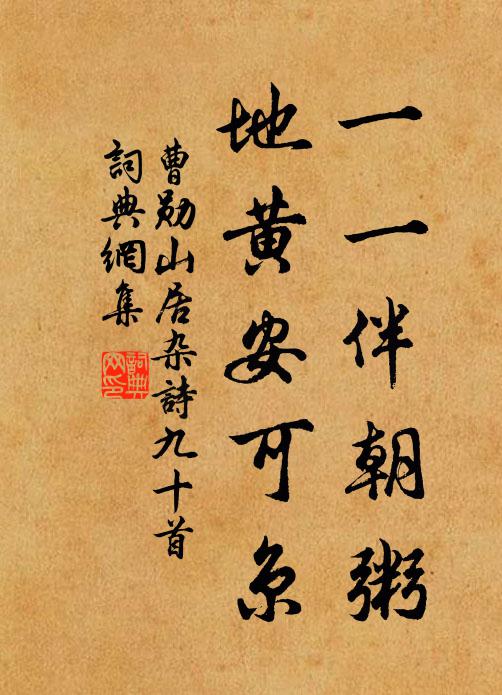 一一伴朝粥
地黄安可京
曹勛山居杂詩九十首
詞典網集
詞典
网印